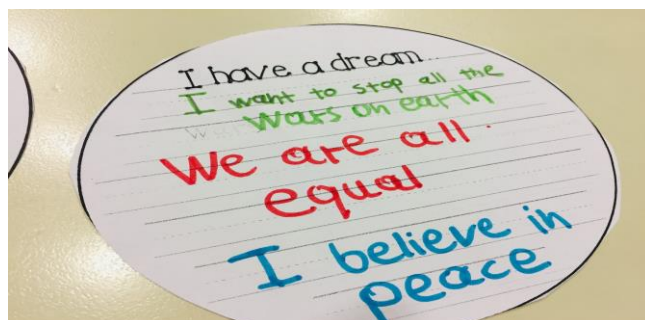 I have a dream...
I want to stop all the
wars on earth
We are all.
equal
I believe in
peace